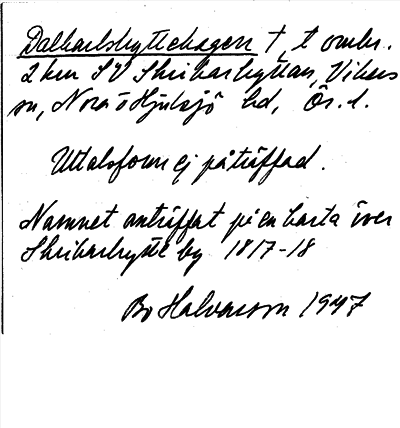 Dalkarlshyttehagen †, t. omkr.
2 km SV Skrikarhyttan, Vikers
sn, Nora o Hjulsjö bd, Ör. l.
Uttalsform ej påträffad.
Namnet anträffat på en karta över
Skrikarhytte by 1817-18
Bo Halvarson 1947